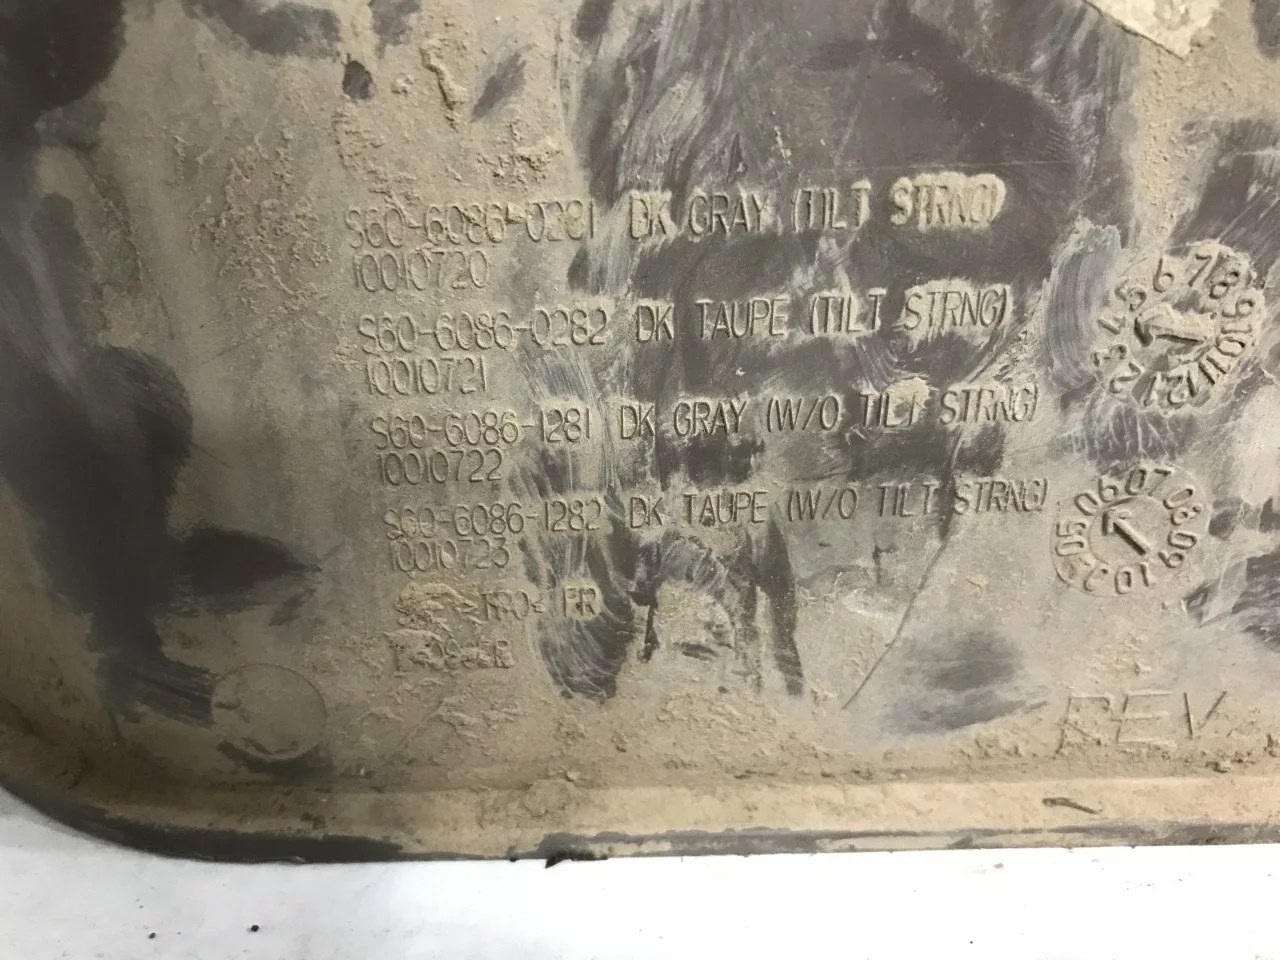 S60-6086-0281 DK GRAY (TILT STRNG)
10010720
S60-6086-0282 DK TAUPE (TILT STRNG)
10010721
S60-6086-1281 DK GRAY (W/O TILT STRNG)
10010722
S60-6086-1282 DK TAUPE (W/O TILT STRNG)
10010723
2 3 4 5 6 7 8 9 10 11 12 1
05 06 07 08 09 10
REV